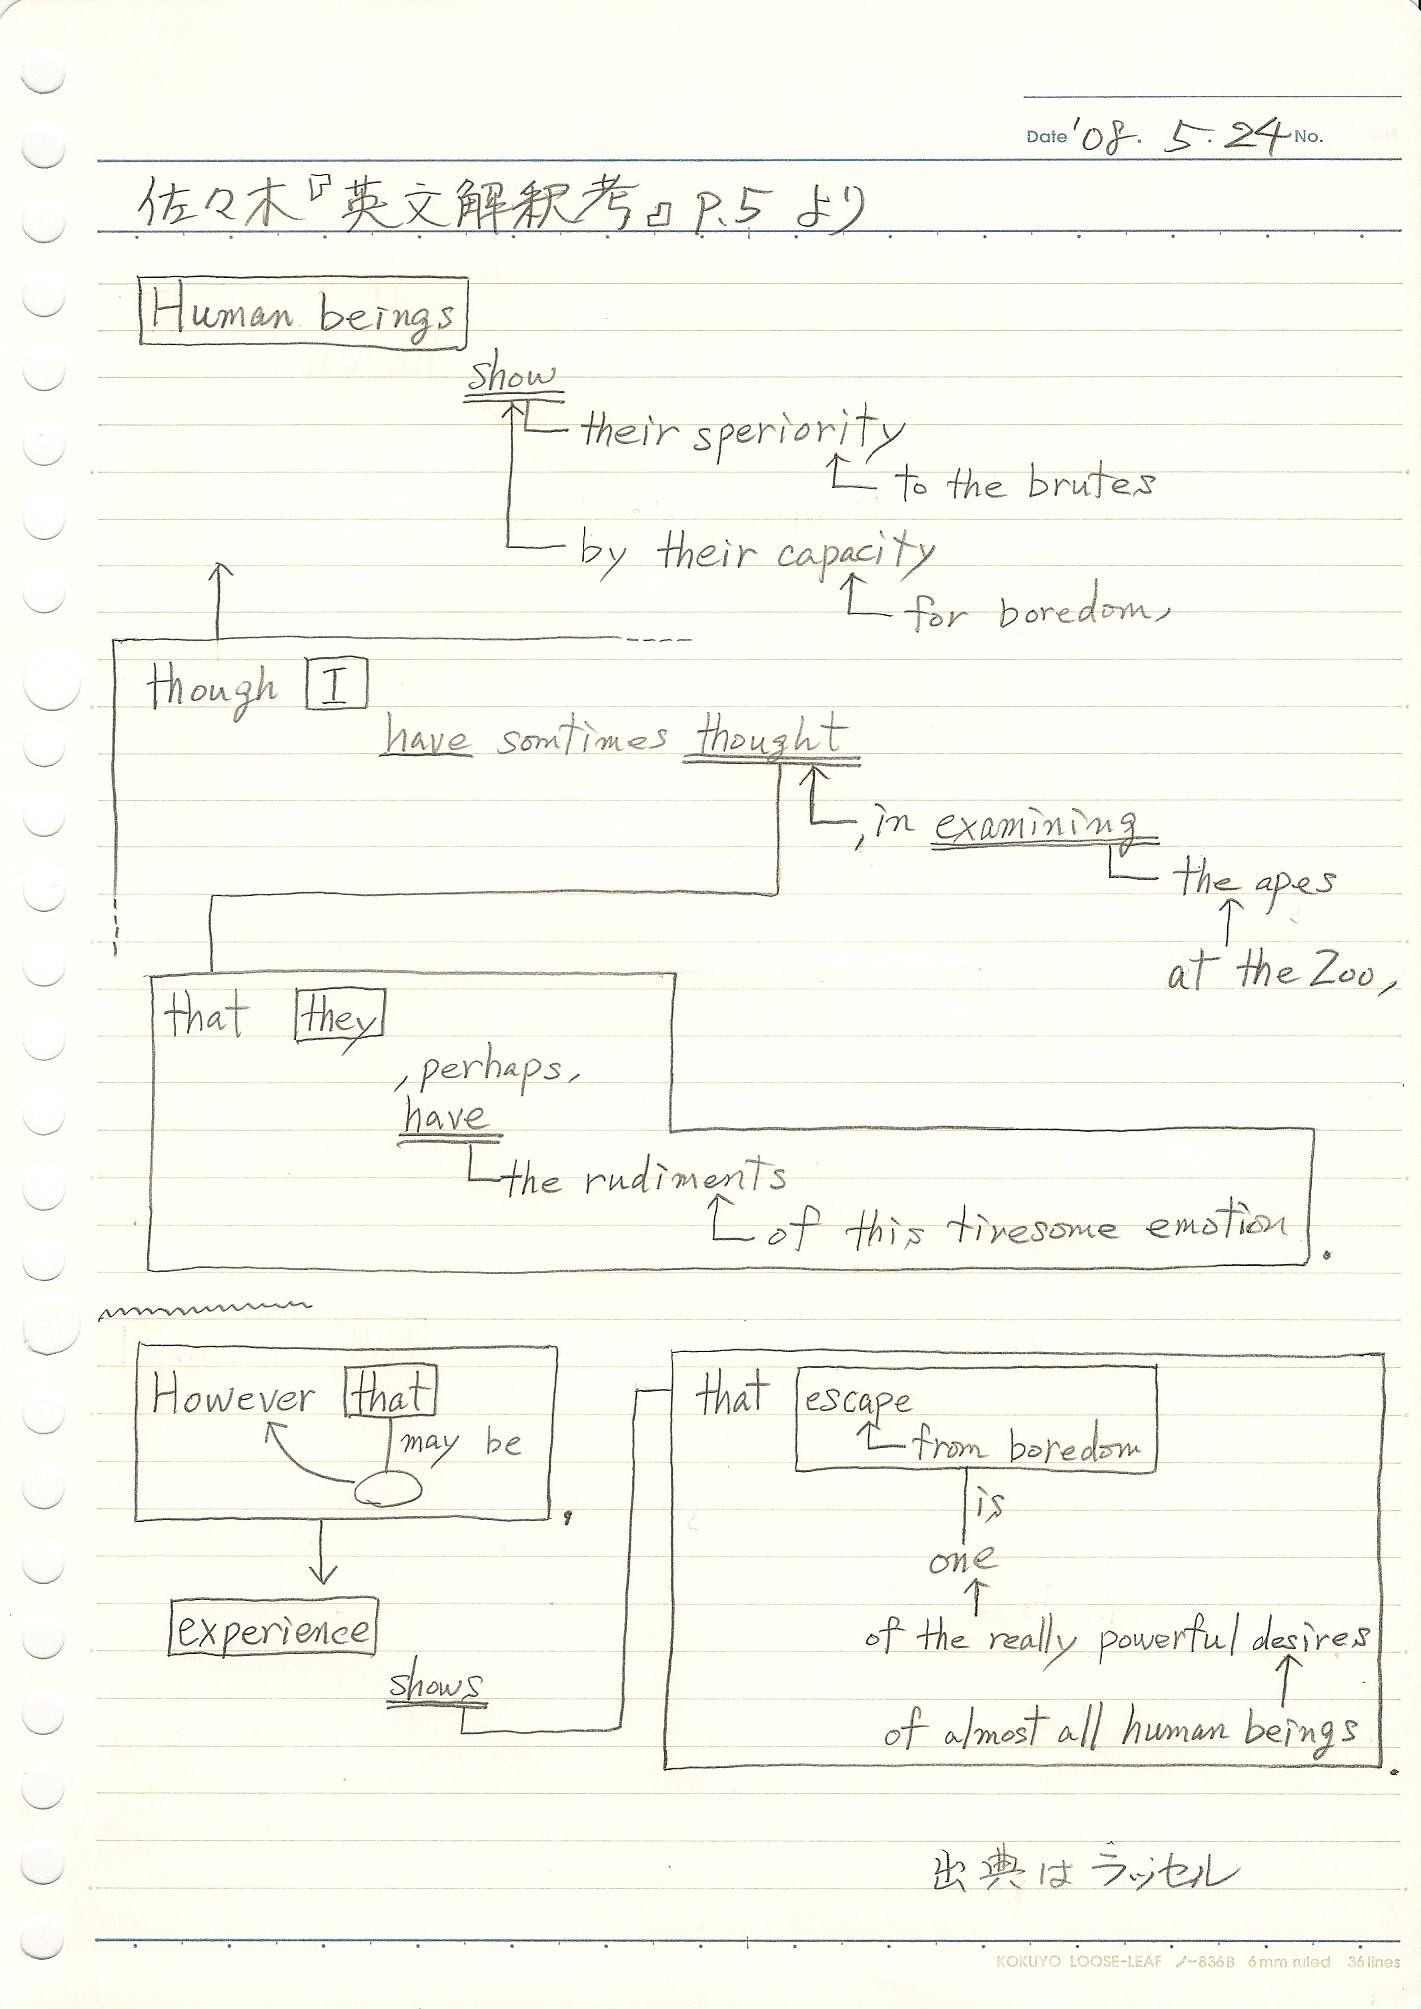 Date '08. 5. 24 No.
佐々木『英文解釈考』P.5 より
Human beings
show
their speriority
to the brutes
by their capacity
for boredom,
though I
have somtimes thought
, in examining
the apes
at the Zoo,
that they
, perhaps,
have
the rudiments
of this tiresome emotion.
However that
may be
,
experience
shows
that escape
from boredom
is
one
of the really powerful desires
of almost all human beings
.
出典は ラッセル
KOKUYO LOOSE-LEAF ノ-836B 6mm ruled 36 lines